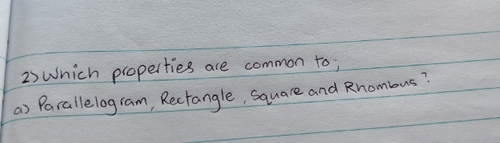 2) Which properties are common to;
a) Parallelogram, Rectangle, Square and Rhombus?